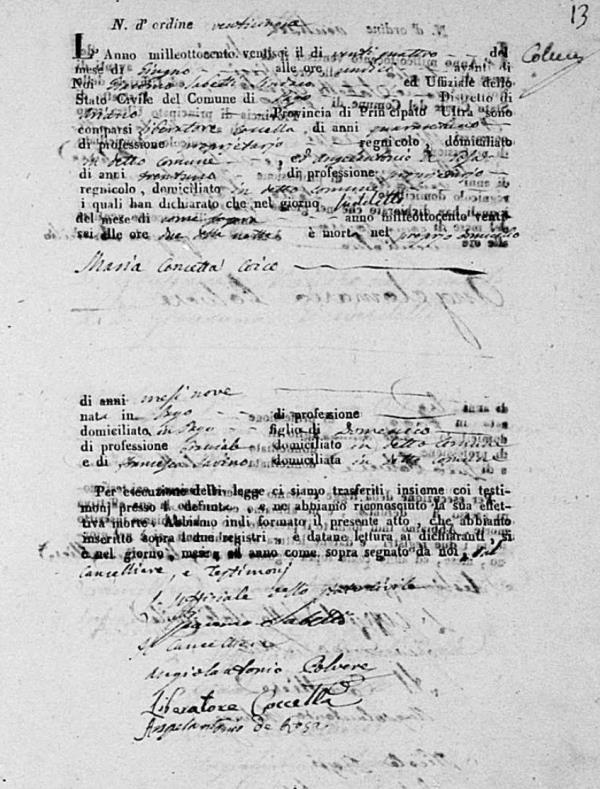 13
N. d' ordine ventinove
L' Anno milleottocento ventisei il di venti quattro del
mese di Giugno alle ore avanti di
Noi Sabetti Sindaco ed Uffiziale dello
Stato Civile del Comune di Pago Distretto di
Ariano Provincia di Principato Ultra sono
comparsi Liberatore Coccella, di anni
di professione proprietario regnicolo, domiciliato
in detto Comune, ed Angelantonio de Rosa
di anni trentuno di professione proprietario
regnicolo, domiciliato in detto comune
i quali han dichiarato che nel giorno
del mese di come sopra anno milleottocento venti
sei alle ore due della notte è morta nel proprio domicilio
Maria Concetta Coico
di anni mesi nove
nata in Pago di professione
domiciliato in Pago figlia di Domenico
di professione domiciliato in detto Comune
e di Francesca Savino domiciliata in detto Comune
Per esecuzione della legge ci siamo trasferiti insieme coi testi-
monj presso il defunto, e ne abbiamo riconosciuto la sua effet-
tiva morte. Abbiamo indi formato il presente atto, che abbiamo
inscritto sopra i due registri, e datane lettura ai dichiaranti, si
è nel giorno, mese, ed anno come sopra segnato da noi, dal
Cancelliere, e Testimonj
L'Uffiziale dello stato civile
Sabetti
Il Cancelliere
Angiolantonio Colvere
Liberatore Coccella
Angelantonio de Rosa